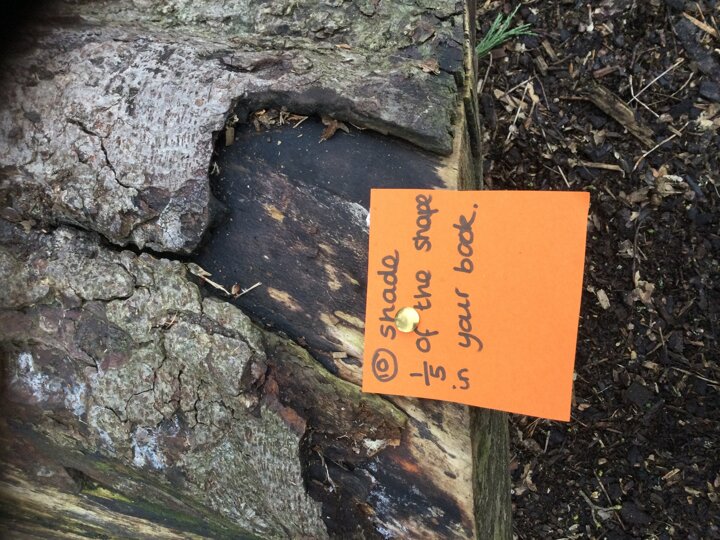 ⑩ shade
1/5 of the shape
in your book.